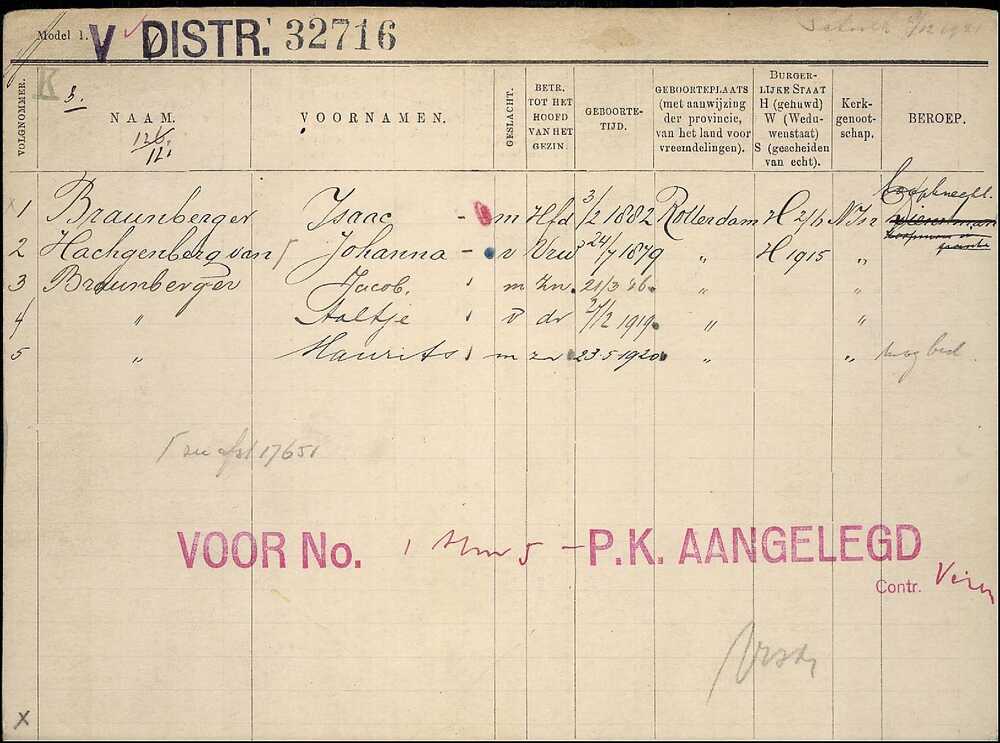 Model 1. V DISTR. 32716
K 3.
VOLGNOMMER.
NAAM.
12.
VOORNAMEN.
GESLACHT.
BETR. TOT HET HOOFD VAN HET GEZIN.
GEBOORTE-TIJD.
GEBOORTEPLAATS (met aanwijzing der provincie, van het land voor vreemdelingen).
BURGER-LIJKE STAAT H (gehuwd) W (Weduwenstaat) S (gescheiden van echt).
Kerk-genoot-schap.
BEROEP.
Loopknecht
1 Braunberger Isaac - m Hfd 3/2 1882 Rotterdam H N Isr
2 Hachgenberg van Johanna - v Vrw 24/7 1879 " H 1915 "
3 Braunberger Jacob. m Zn. 21/3 " "
4 " Aaltje v dr 1919 " "
5 " Maurits m zn 23-5-1920 " "
17651
VOOR No. 1 t/m 5 - P.K. AANGELEGD
Contr.
X